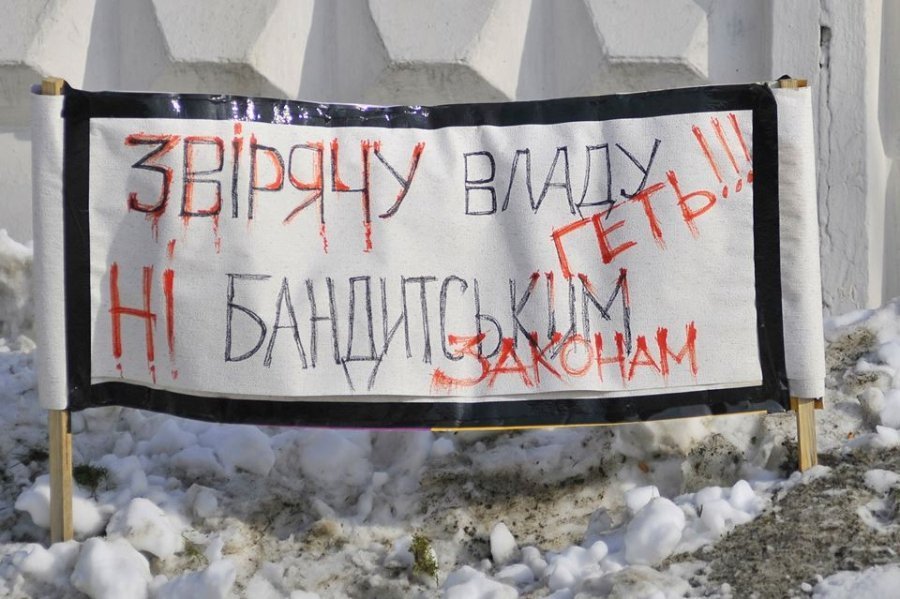 ЗВІРЯЧУ ВЛАДУ ГЕТЬ!!!
НІ БАНДИТСЬКИМ ЗАКОНАМ